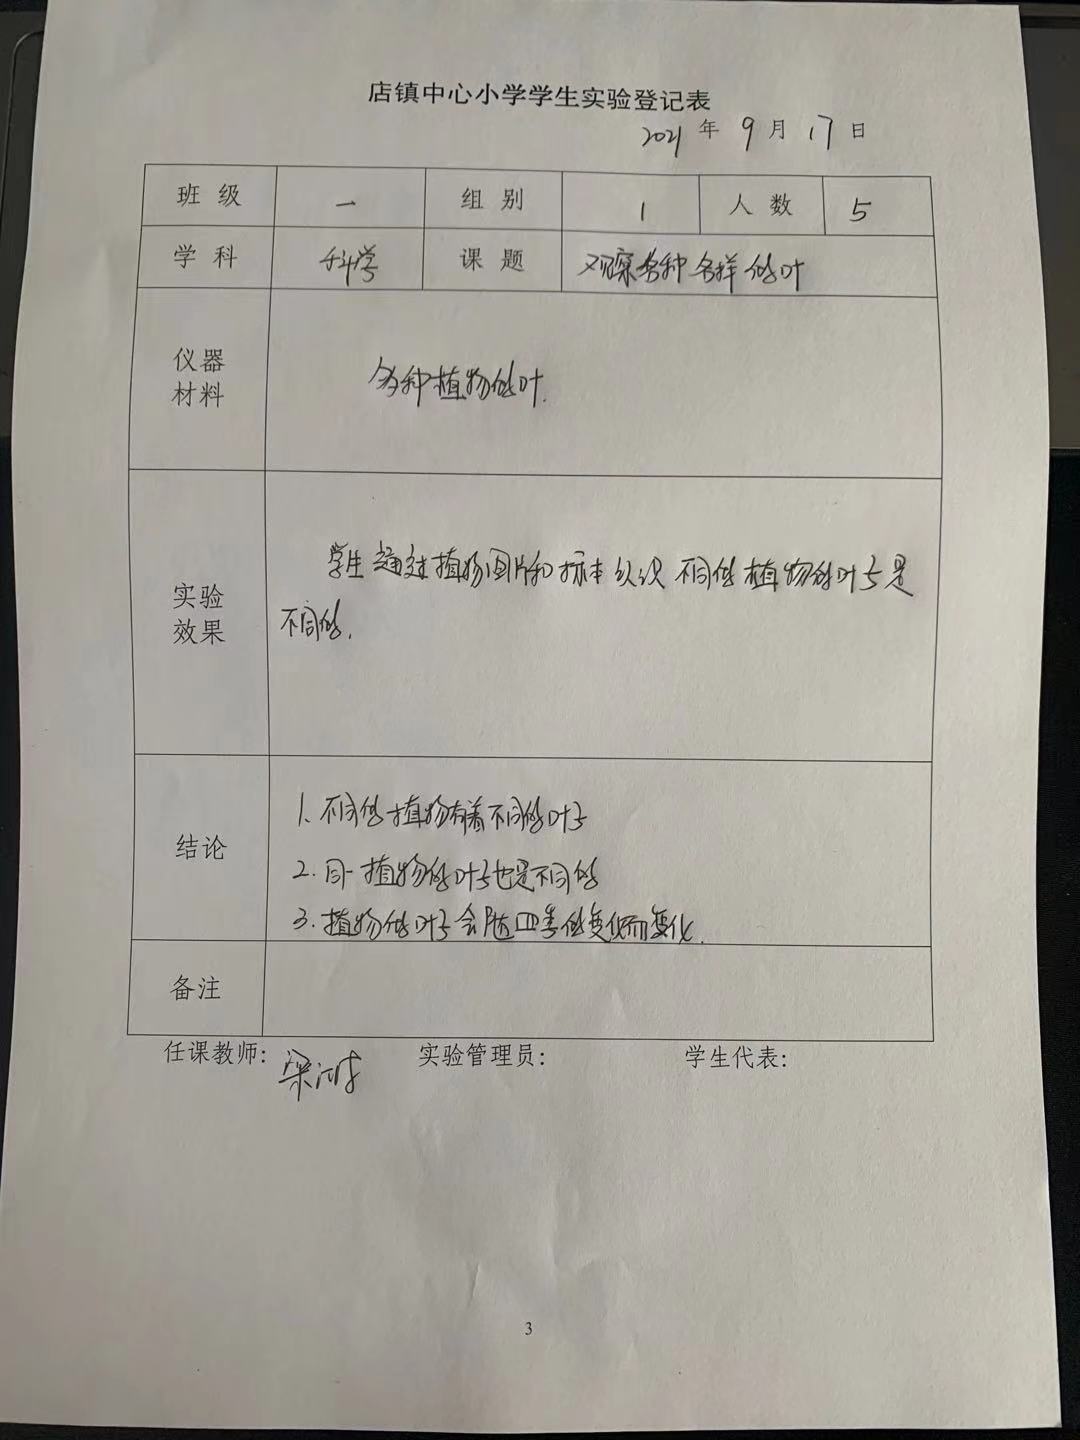 店镇中心小学学生实验登记表
2021年9月17日
班级 一 组别 1 人数 5
学科 科学 课题 观察各种各样的叶
仪器材料 各种植物的叶.
实验效果 学生通过植物图片和标本认识不同的植物的叶子是
不同的.
结论 1、不同的植物有着不同的叶子
2.同一植物的叶子也是不同的
3.植物的叶子会随四季的变化而变化.
备注
任课教师: 梁 实验管理员: 学生代表:
3